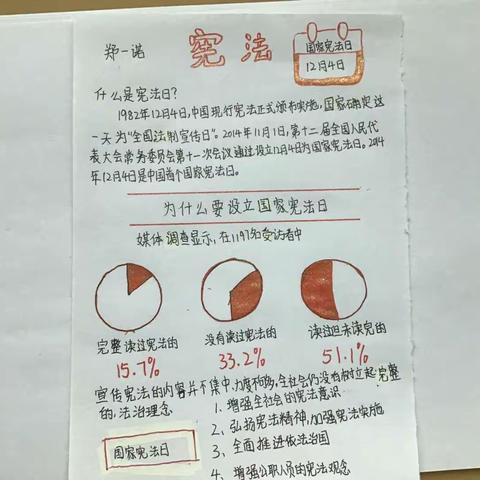 郑一诺
宪法
国家宪法日
12月4日
什么是宪法日?
1982年12月4日,中国现行宪法正式颁布实施,国家确定这
一天为“全国法制宣传日”。2014年11月1日,第十二届全国人民代
表大会常务委员会第十一次会议通过设立12月4日为国家宪法日。2014
年12月4日是中国首个国家宪法日。
为什么要设立国家宪法日
媒体调查显示,在1197名受访者中
完整读过宪法的
15.7%
没有读过宪法的
33.2%
读过但未读完的
51.1%
宣传宪法的内容并不集中,力度不够,全社会仍没有树立起完整
的,法治理念
1、增强全社会的宪法意识
2、弘扬宪法精神,加强宪法实施
3、全面推进依法治国
4、增强公职人员的宪法观念
国家宪法日